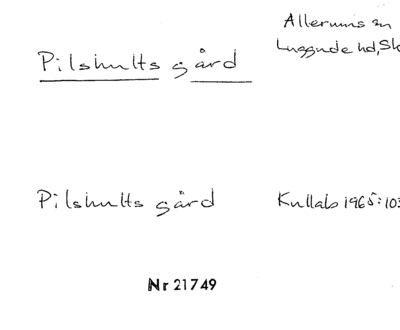 Allerums sn
Pilshults gård
Luggude hd, Sk
Pilshults gård
Kullab 1965:103
Nr 21749